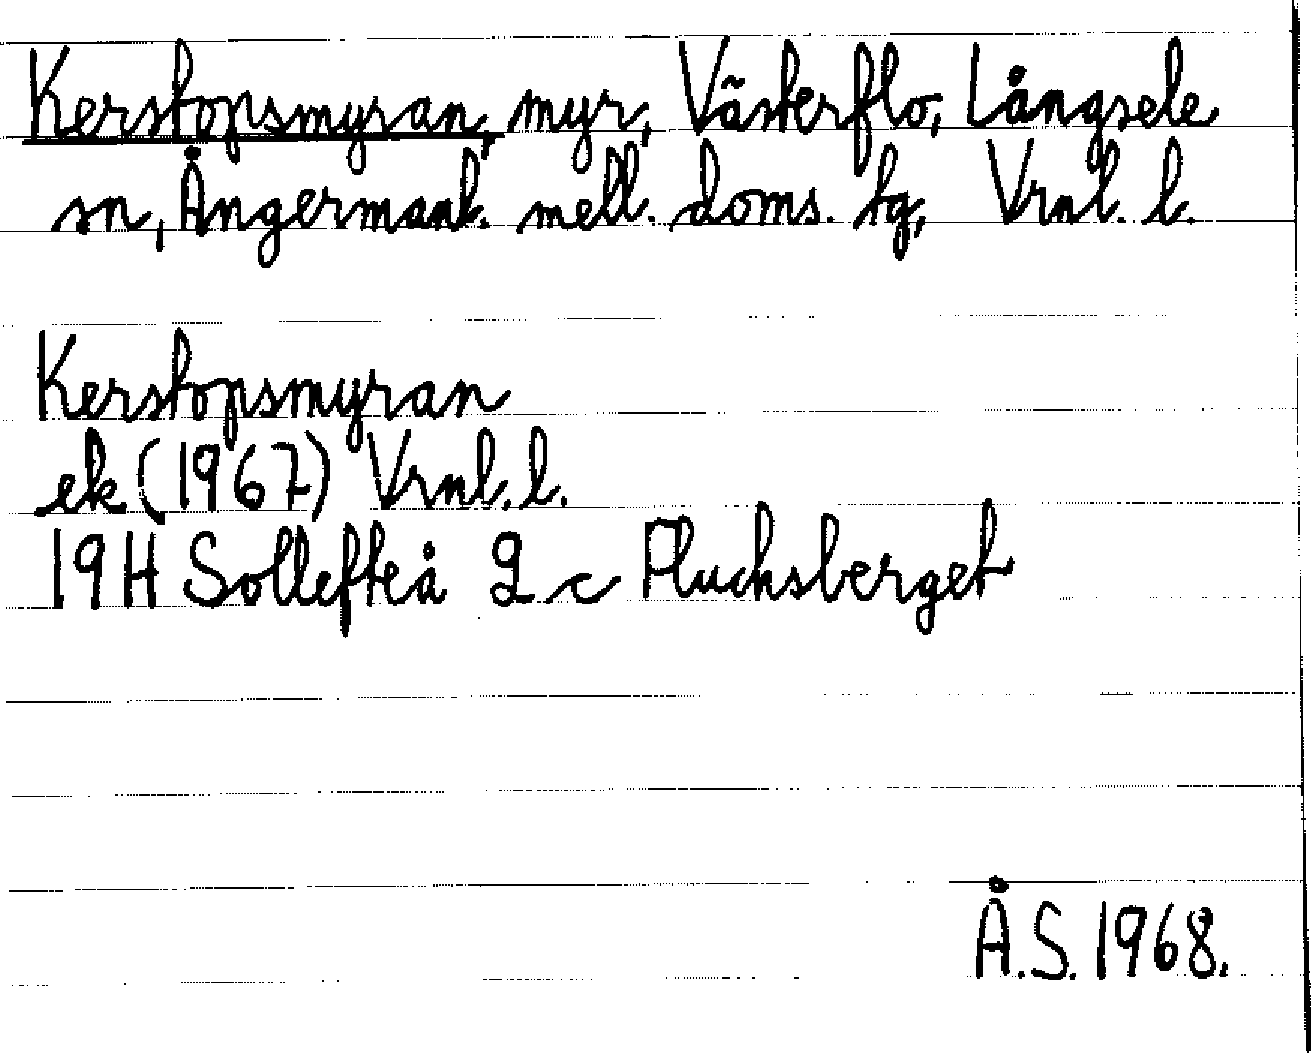 Kerstopsmyran, myr, Västerflo, Långsele
sn, Ångermanl. mell. doms. tg, Vrnl. l.
Kerstopsmyran
ek (1967) Vrnl. l.
19H Sollefteå 9 c Fluchsberget
Å.S. 1968.